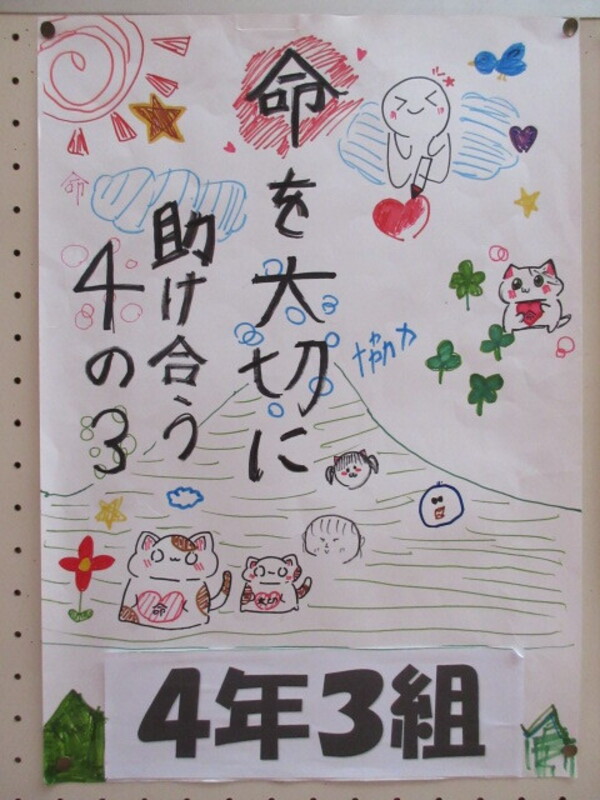 命を大切に
助け合う
4の3
協力
命
命
大切
4年3組